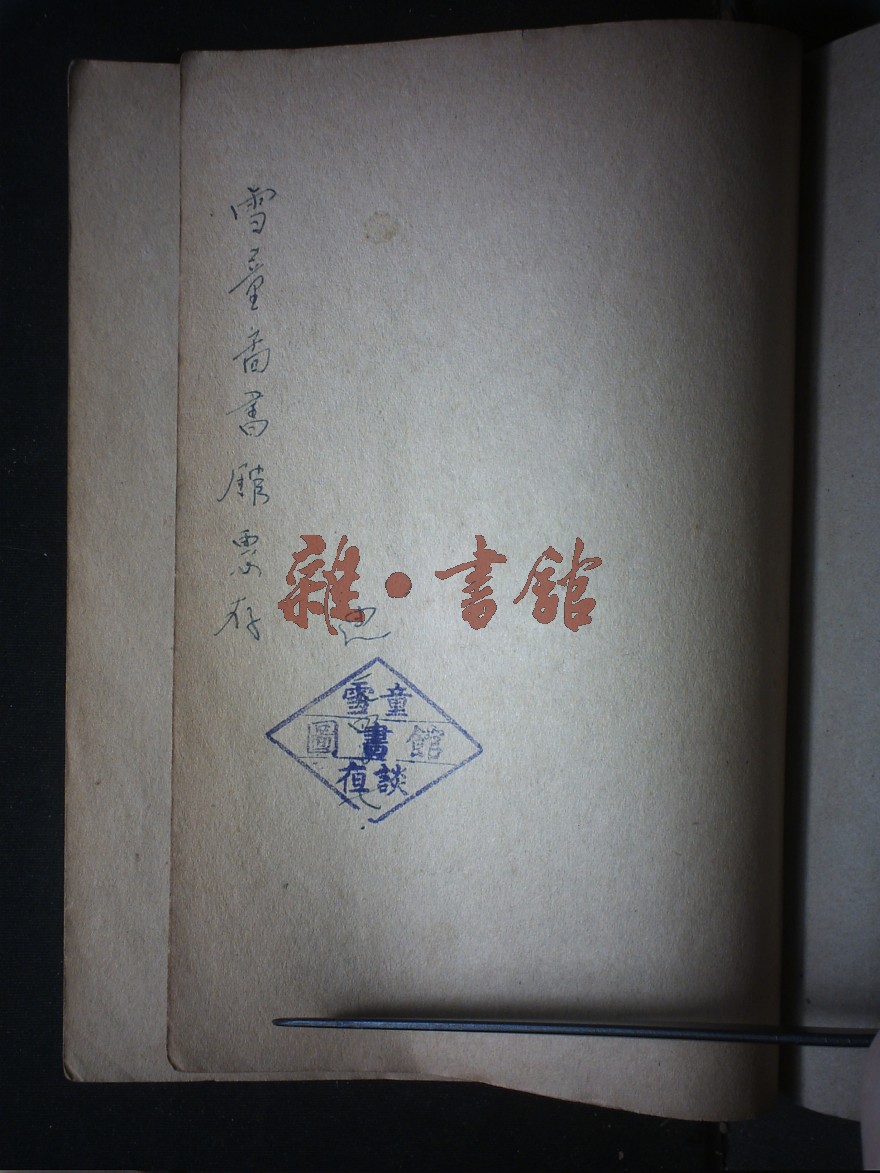 雪童啚書館惠存
雜·書館
雪童
圖書館
談